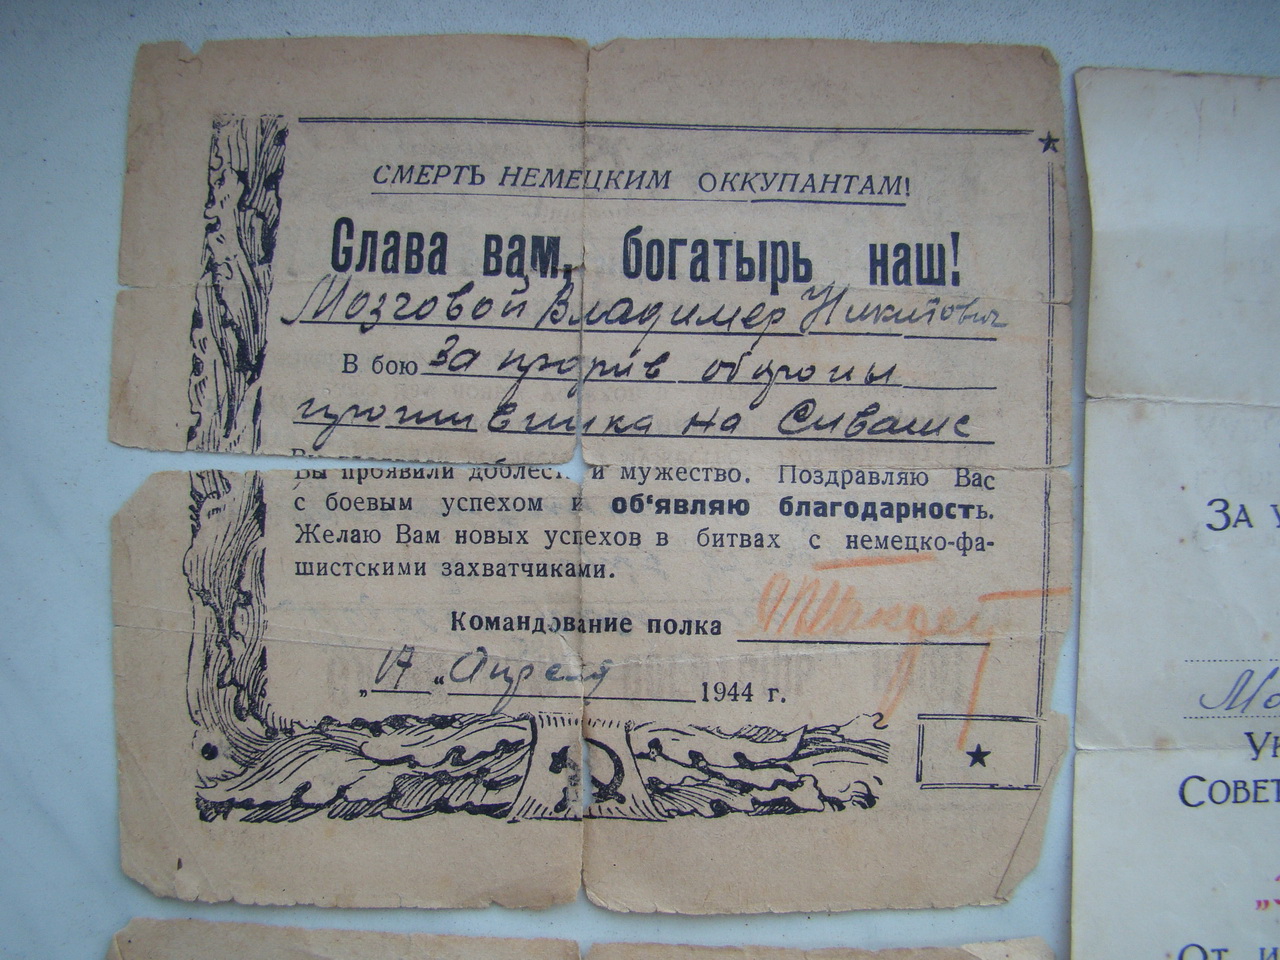 СМЕРТЬ НЕМЕЦКИМ ОККУПАНТАМ!
Слава вам, богатырь наш!
Мозговой Владимер Никитович
В бою За прорив обороны
противника на Сиваше
Вы проявили доблест и мужество. Поздравляю Вас
с боевым успехом и об‘являю благодарность.
Желаю Вам новых успехов в битвах с немецко-фа-
шистскими захватчиками.
Командование полка
„17„ Апреля 1944 г.
За у
Мо
Ук
Совет
От и